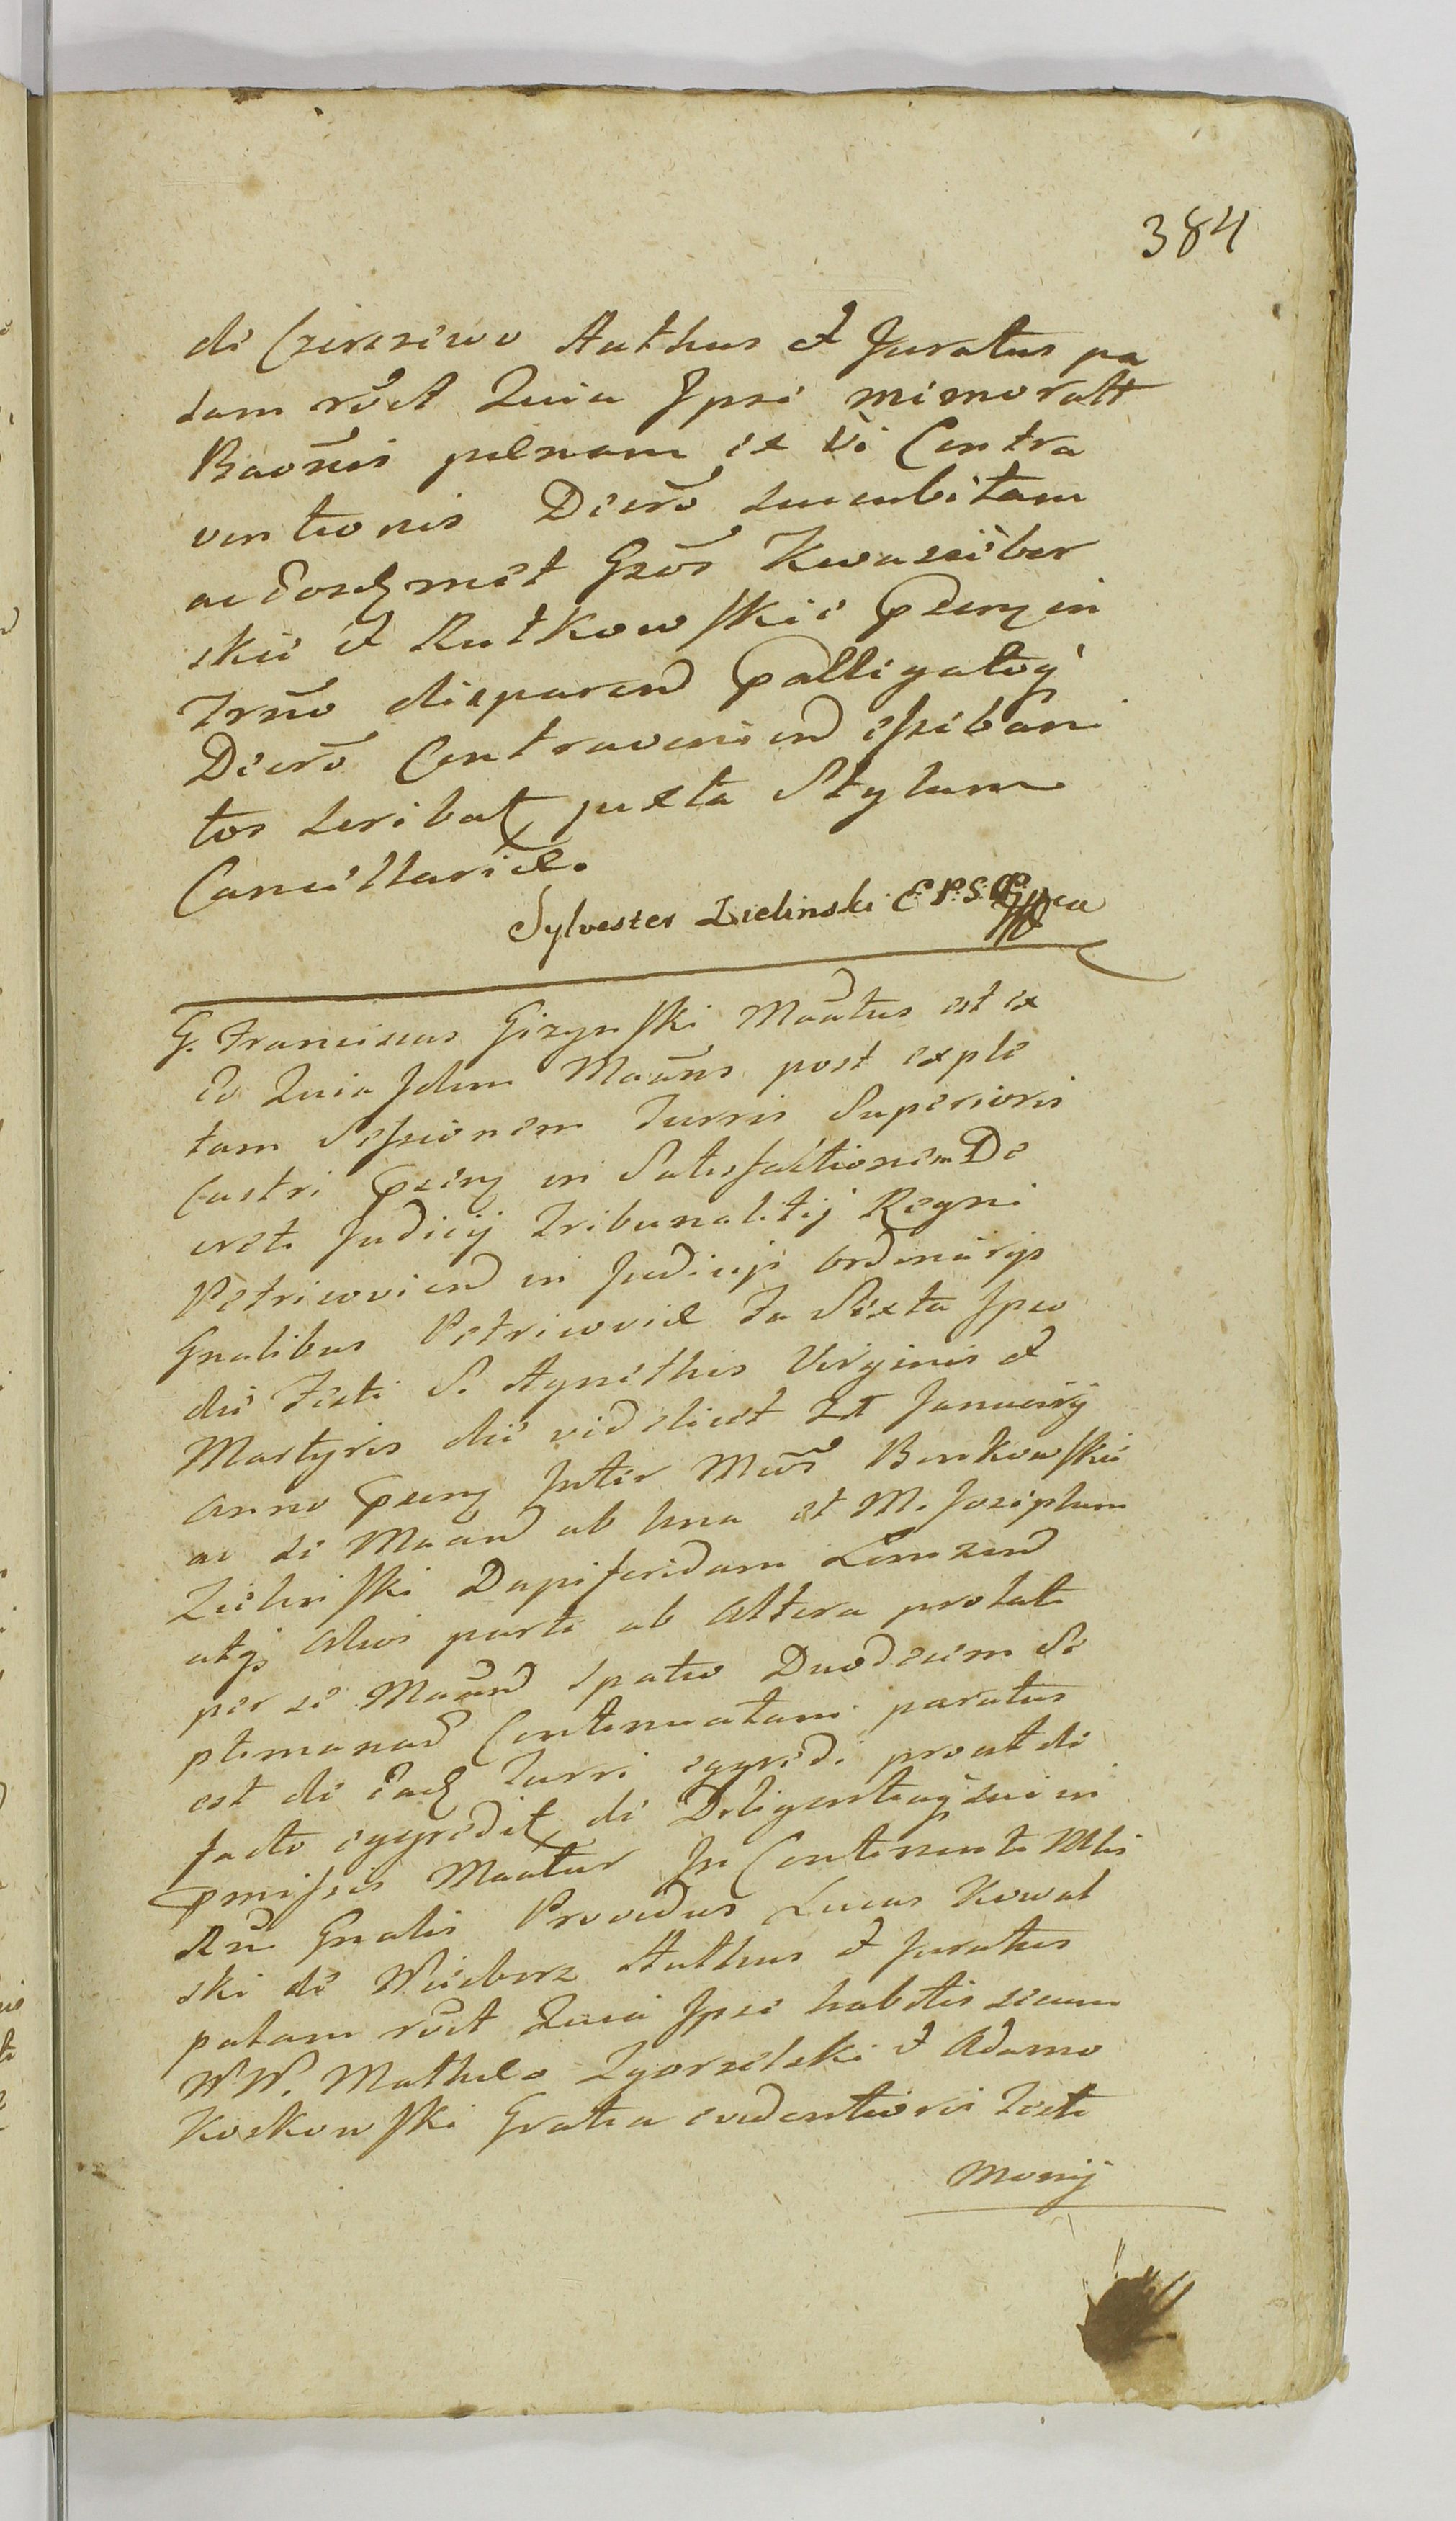 384
de Czerszewo Authus et Juratus pa
lam rõct Quia Ipse memoratt
Raõnis pœnam ex Vi Contra
ventionis Decrõ succubitam
ac eosdmet Gsõs
skie et Rutkowskie pñtes in
Trnõ disparend
Decrõ Contraveniend
tos scribat juxta Stylum
Cancellariæ.
Sylvester Zielinski
G. Franciscus Gizynski Maãtus est ex
Eo Quia Idem Maãns post exple
tam Sessionem Turris Superioris
Castri in Satisfactionem De
creti Judicij Tribunalitij Regni
Petricovien in Judicijs ordinarijs
Gnalibus Petricoviæ Fa Sexta Ipso
die Festi S. Agnethis Virginis et
Martyris die videlicet 21 Januarij
Anno inter Benkowskie
ac se Maand ab Una et M. Josephum
Zielinski Dapiferidam Lomzend
atq alios parte ab Altera prolati
per se Maand spatio Duodecim Se
ptimanad Continuatam paratus
est de Turri egredi prout de
facto egredit de Diligentiaq sua in
pmissis Maatur In Continenti Mlis
Rñi Gnalis Providus Lucas Kowal
ski de Authus et Juratus
palam rõct Quia Ipse habitis secum
WW. Mathæo Zgorzelski et Adamo
Koskowski Gratia evidentioris Testi
monij